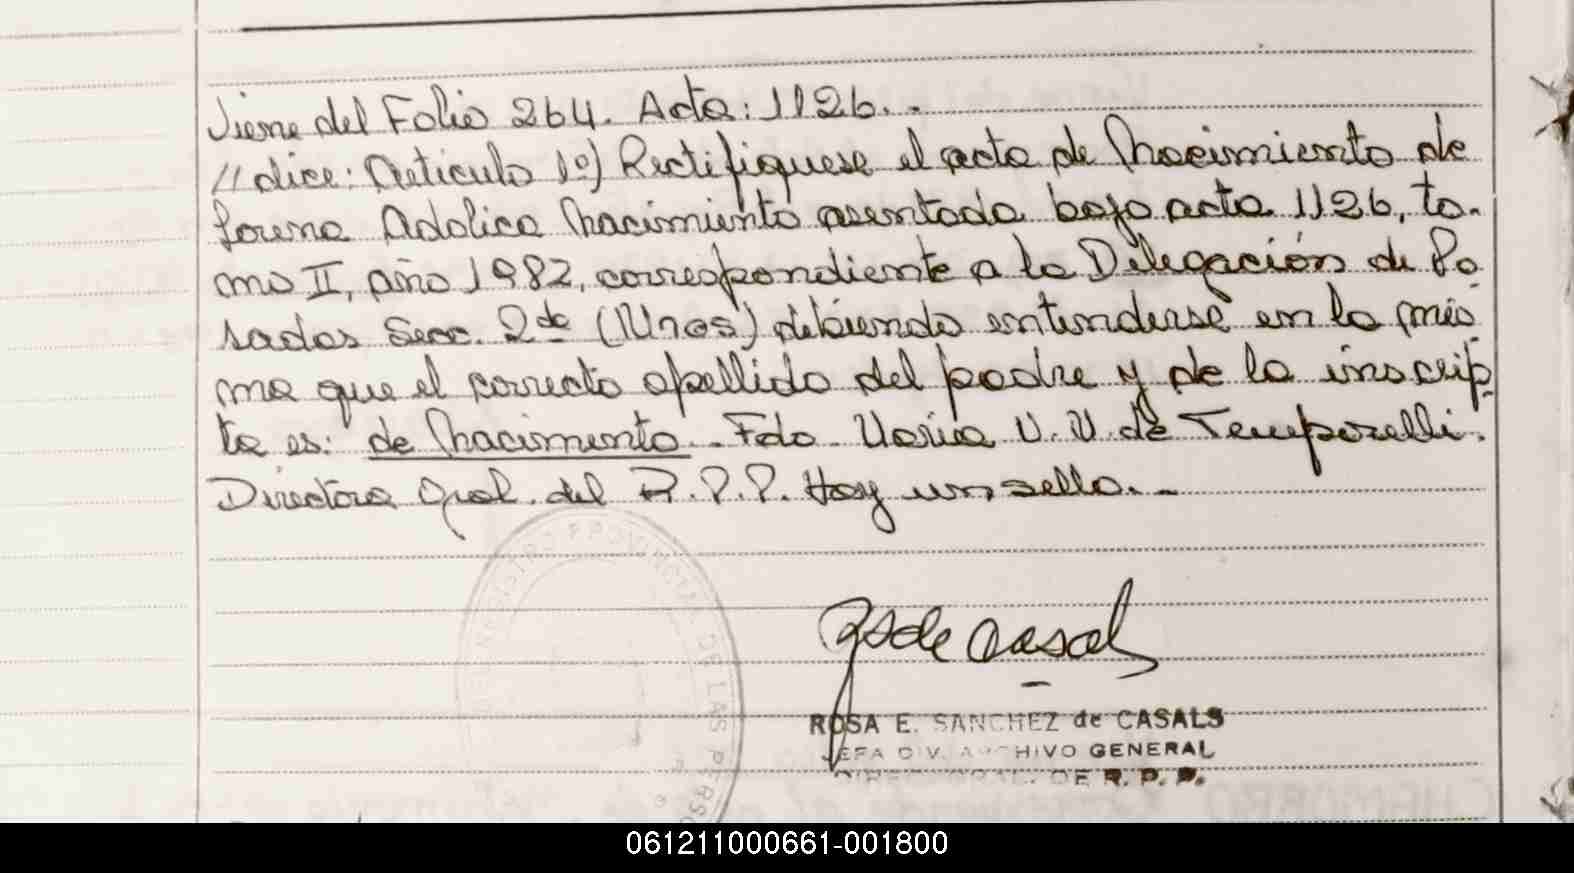 Viene del Folio 264. Acta: 1126.-
//dice: Articulo 1º) Rectifiquese el acta de Nacimiento de
Lorena Adolica Nacimiento asentada bajo acta 1126, to-
mo II, año 1982, correspondiente a la Delegación de Po-
sadas Secc. 2da (Mnes) debiendo entenderse en la mis-
ma que el correcto apellido del padre y de la inscrip-
ta es: de Nacimento. Fdo. Maria V. V. de Temporelli.
Directora Gral. del R.P.P. Hay un sello.-
REGISTRO PROVINCIAL DE LAS PERSO
ROSA E. SANCHEZ de CASALS
JEFA DIV. ARCHIVO GENERAL
DIREC. GRAL. DE R. P. P.
061211000661-001800